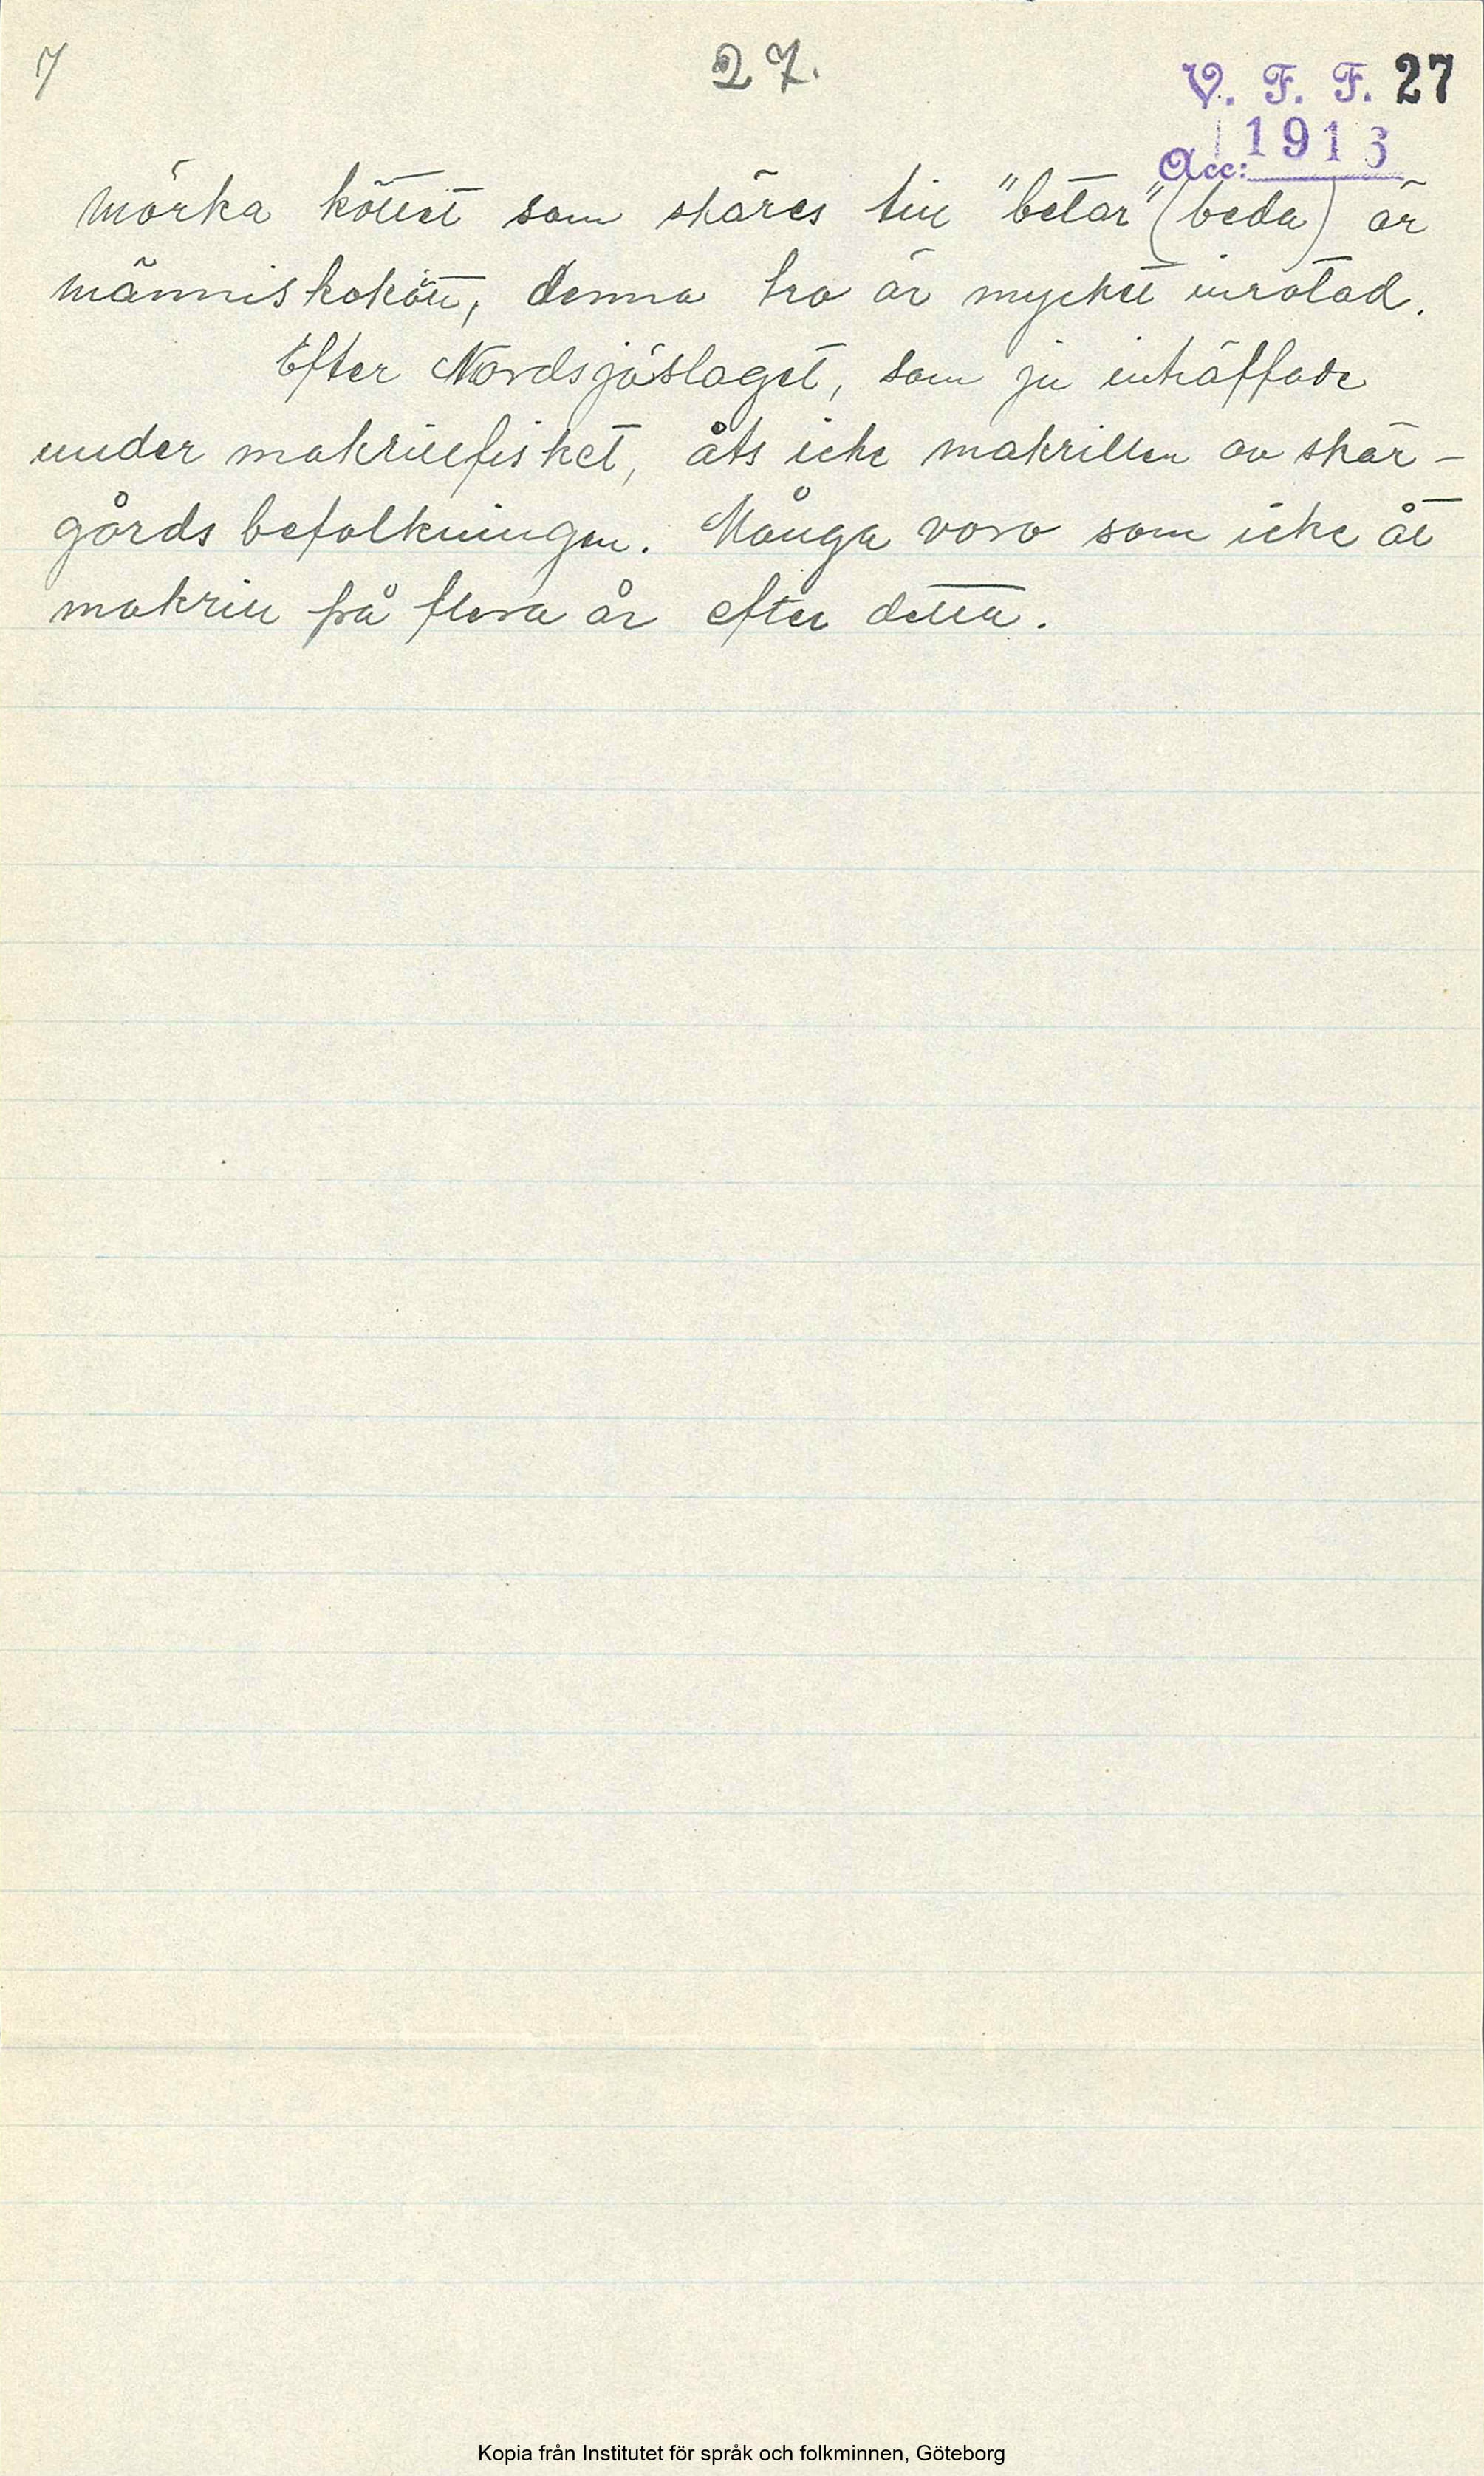 7
27.
V. F. F. 27
Acc: 1913
mörka köttet som skäres till "betar" (beda) är
människokött, denna tro är mycket inrotad.
Efter Nordsjöslaget, som ju inträffade
under makrillfisket, åts icke makrillen av skär-
gårds befolkningen. Många voro som icke åt
makrill på flera år efter detta.
Kopia från Institutet för språk och folkminnen, Göteborg